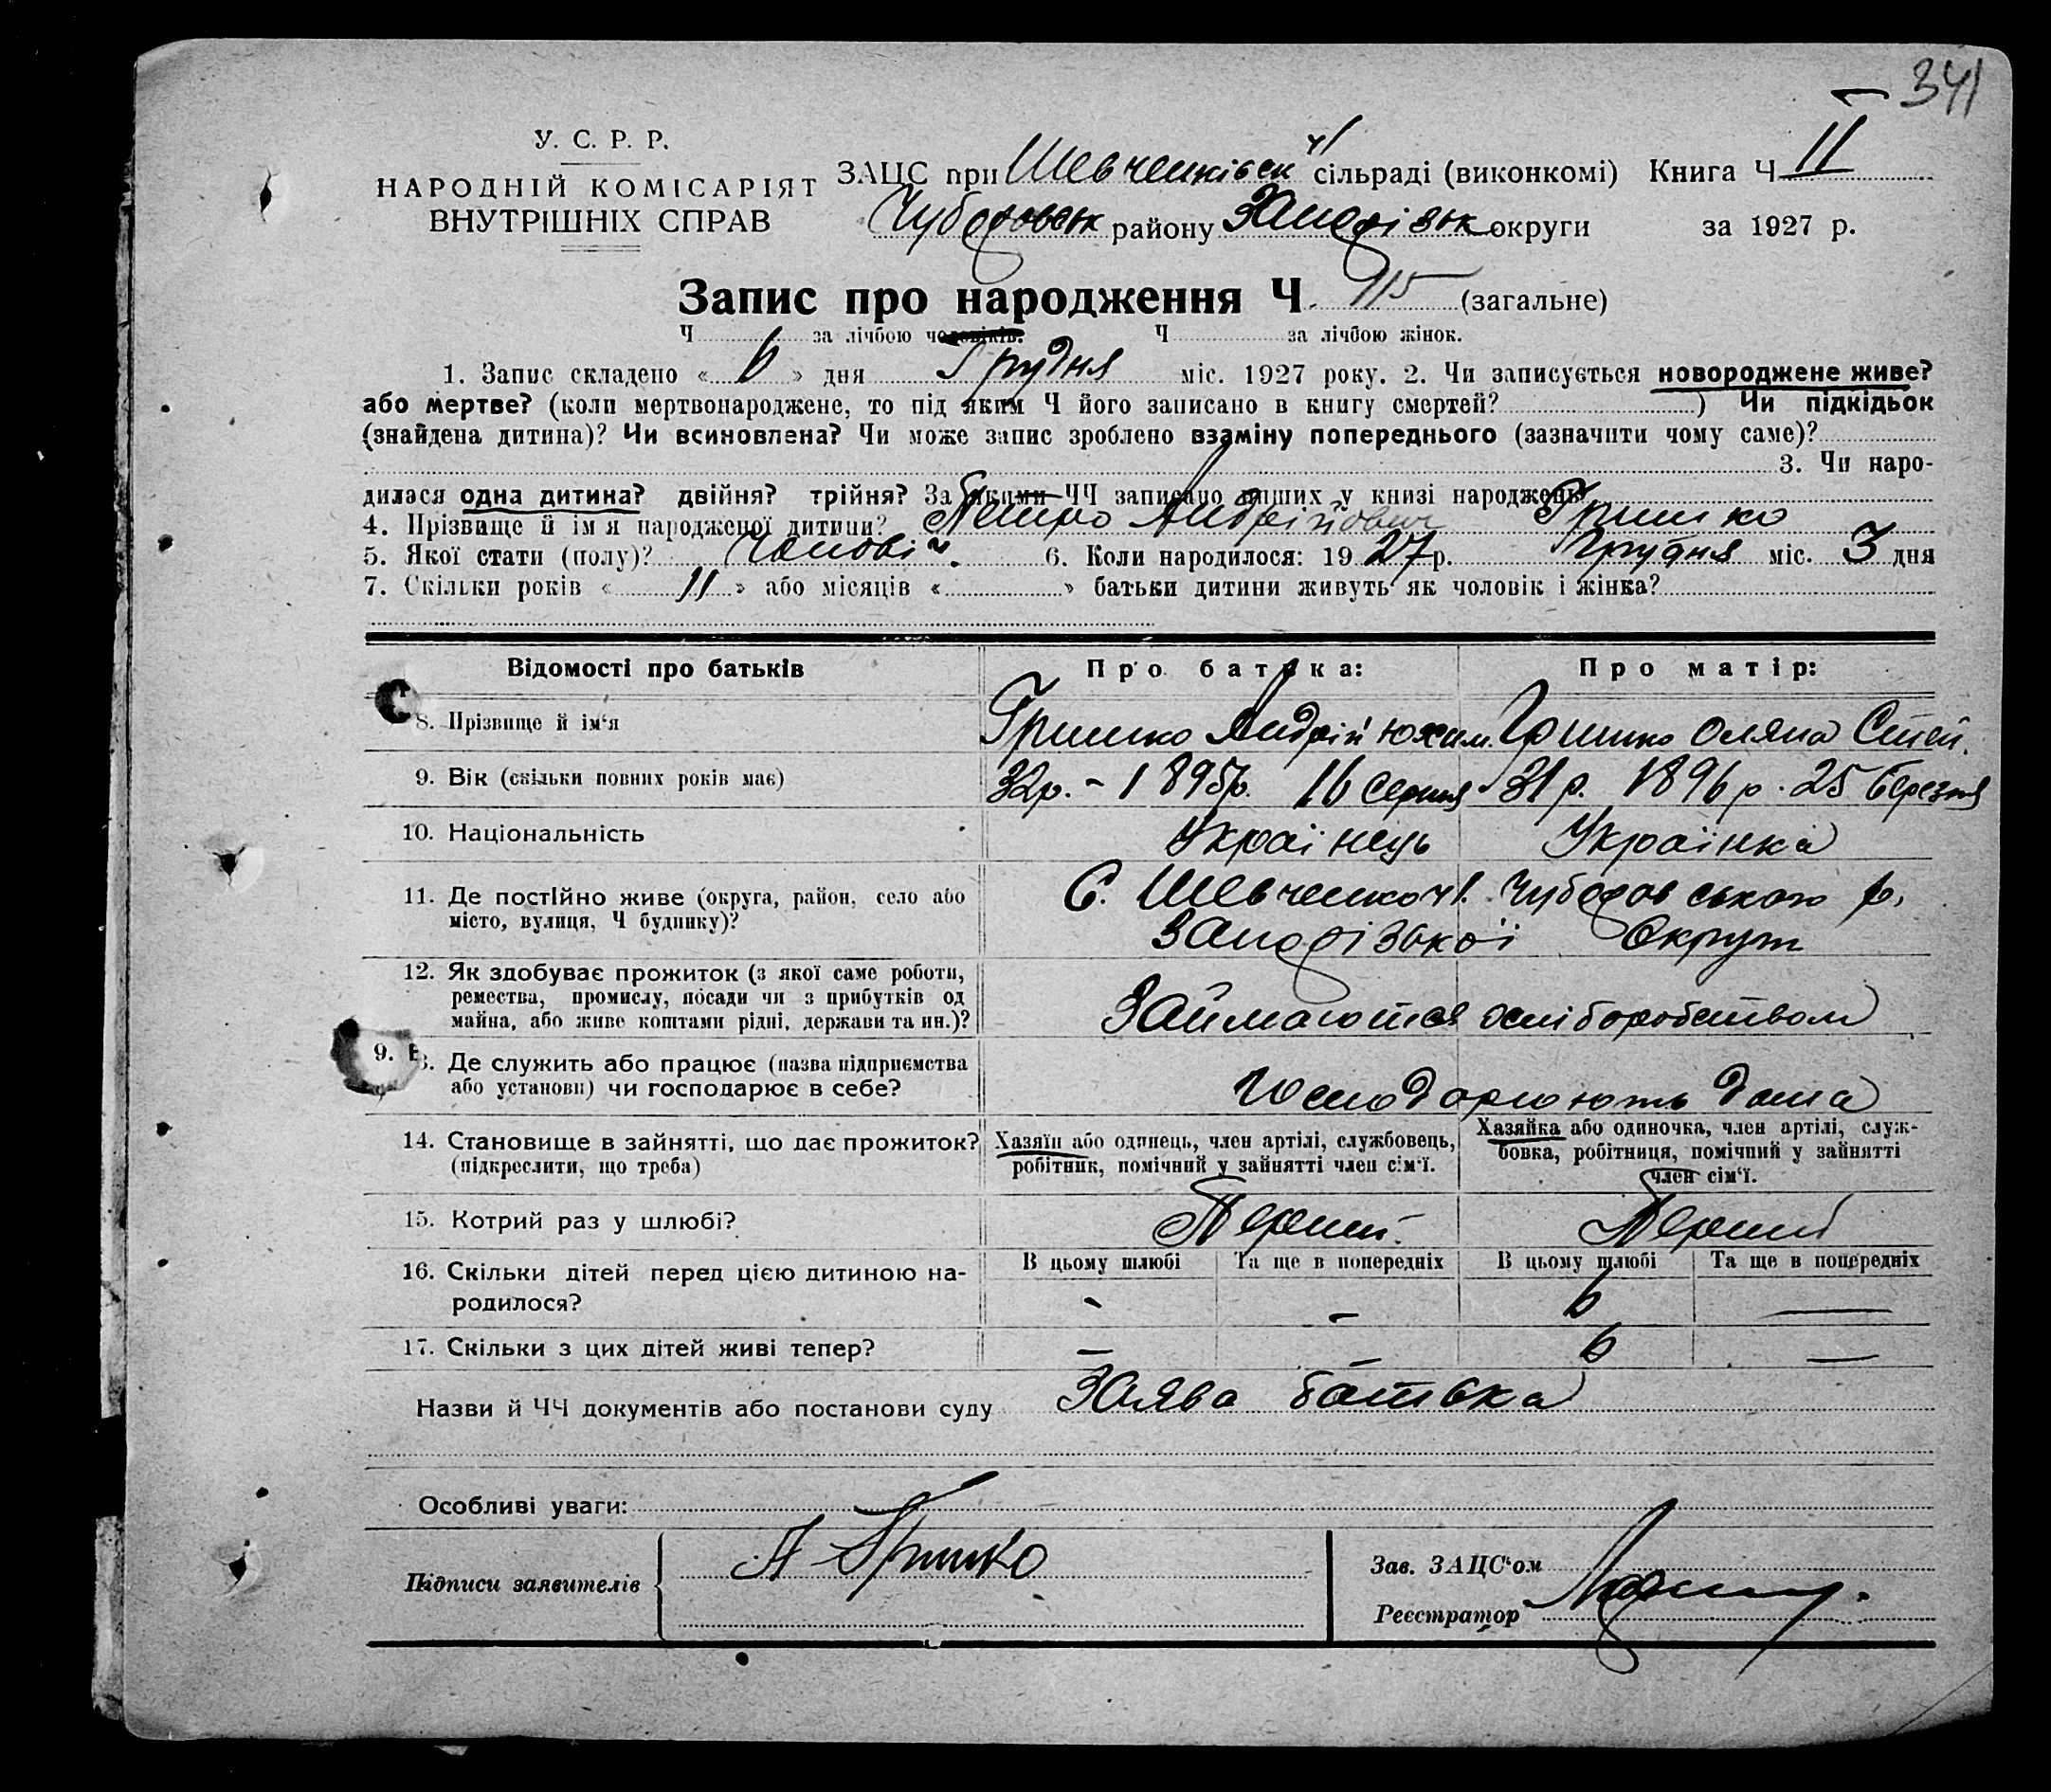 341
У. С. Р. Р.
НАРОДНІЙ КОМІСАРІЯТ
ВНУТРІШНІХ СПРАВ
ЗАЦС при Шевченківськ сільраді (виконкомі) Книга Ч II
Чубарівськ району Запорізьк округи за 1927 р.
Запис про народження Ч 115 (загальне)
Ч за лічбою чоловіків. Ч за лічбою жінок.
1. Запис складено « 6 » дня Грудня міс. 1927 року. 2. Чи записується новороджене живе?
або мертве? (коли мертвонароджене, то під яким Ч його записано в книгу смертей? ) Чи підкідьок
(знайдена дитина)? Чи всиновлена? Чи може запис зроблено взаміну попереднього (зазначити чому саме)?
3. Чи наро-
дилася одна дитина? двійня? трійня? За якими ЧЧ записано инших у книзі народжень
4. Прізвище й ім'я народженої дитини? Петро Андрійович Гришко
5. Якої стати (полу)? Чоловіч. 6. Коли народилося: 1927 р. Грудня міс. 3 дня
7. Скільки років « 11 » або місяців « » батьки дитини живуть як чоловік і жінка?
Відомості про батьків Про батька: Про матір:
8. Прізвище й ім'я Гришко Андрій Юхим. Гришко Оляна Степ.
9. Вік (скільки повних років має) 32р. - 1895р. 16 серпня 31 р. 1896 р. 25 березня
10. Національність Українець Українка
11. Де постійно живе (округа, район, село або
місто, вулиця, Ч будинку)?
С. Шевченко Чубарівського р.
Запорізької Округи
12. Як здобуває прожиток (з якої саме роботи,
ремества, промислу, посади чи з прибутків од
майна, або живе коштами рідні, держави та ин.)?
Займаются хліборобством
9. В
3. Де служить або працює (назва підприємства
або установи) чи господарює в себе?
Господарюють дома
14. Становище в зайнятті, що дає прожиток?
(підкреслити, що треба)
Хазяїн або одинець, член артілі, службовець,
робітник, помічний у зайнятті член сім'ї.
Хазяйка або одиночка, член артілі, служ-
бовка, робітниця, помічний у зайнятті
член сім'ї.
15. Котрий раз у шлюбі? Перший. Перший
16. Скільки дітей перед цією дитиною на-
родилося?
В цьому шлюбі Та ще в попередніх В цьому шлюбі Та ще в попередніх
- - 6 —
17. Скільки з цих дітей живі тепер? — — 6 —
Назви й ЧЧ документів або постанови суду Заява батька
Особливі уваги:
Підписи заявителів А Гришко
Зав. ЗАЦС'ом
Реєстратор